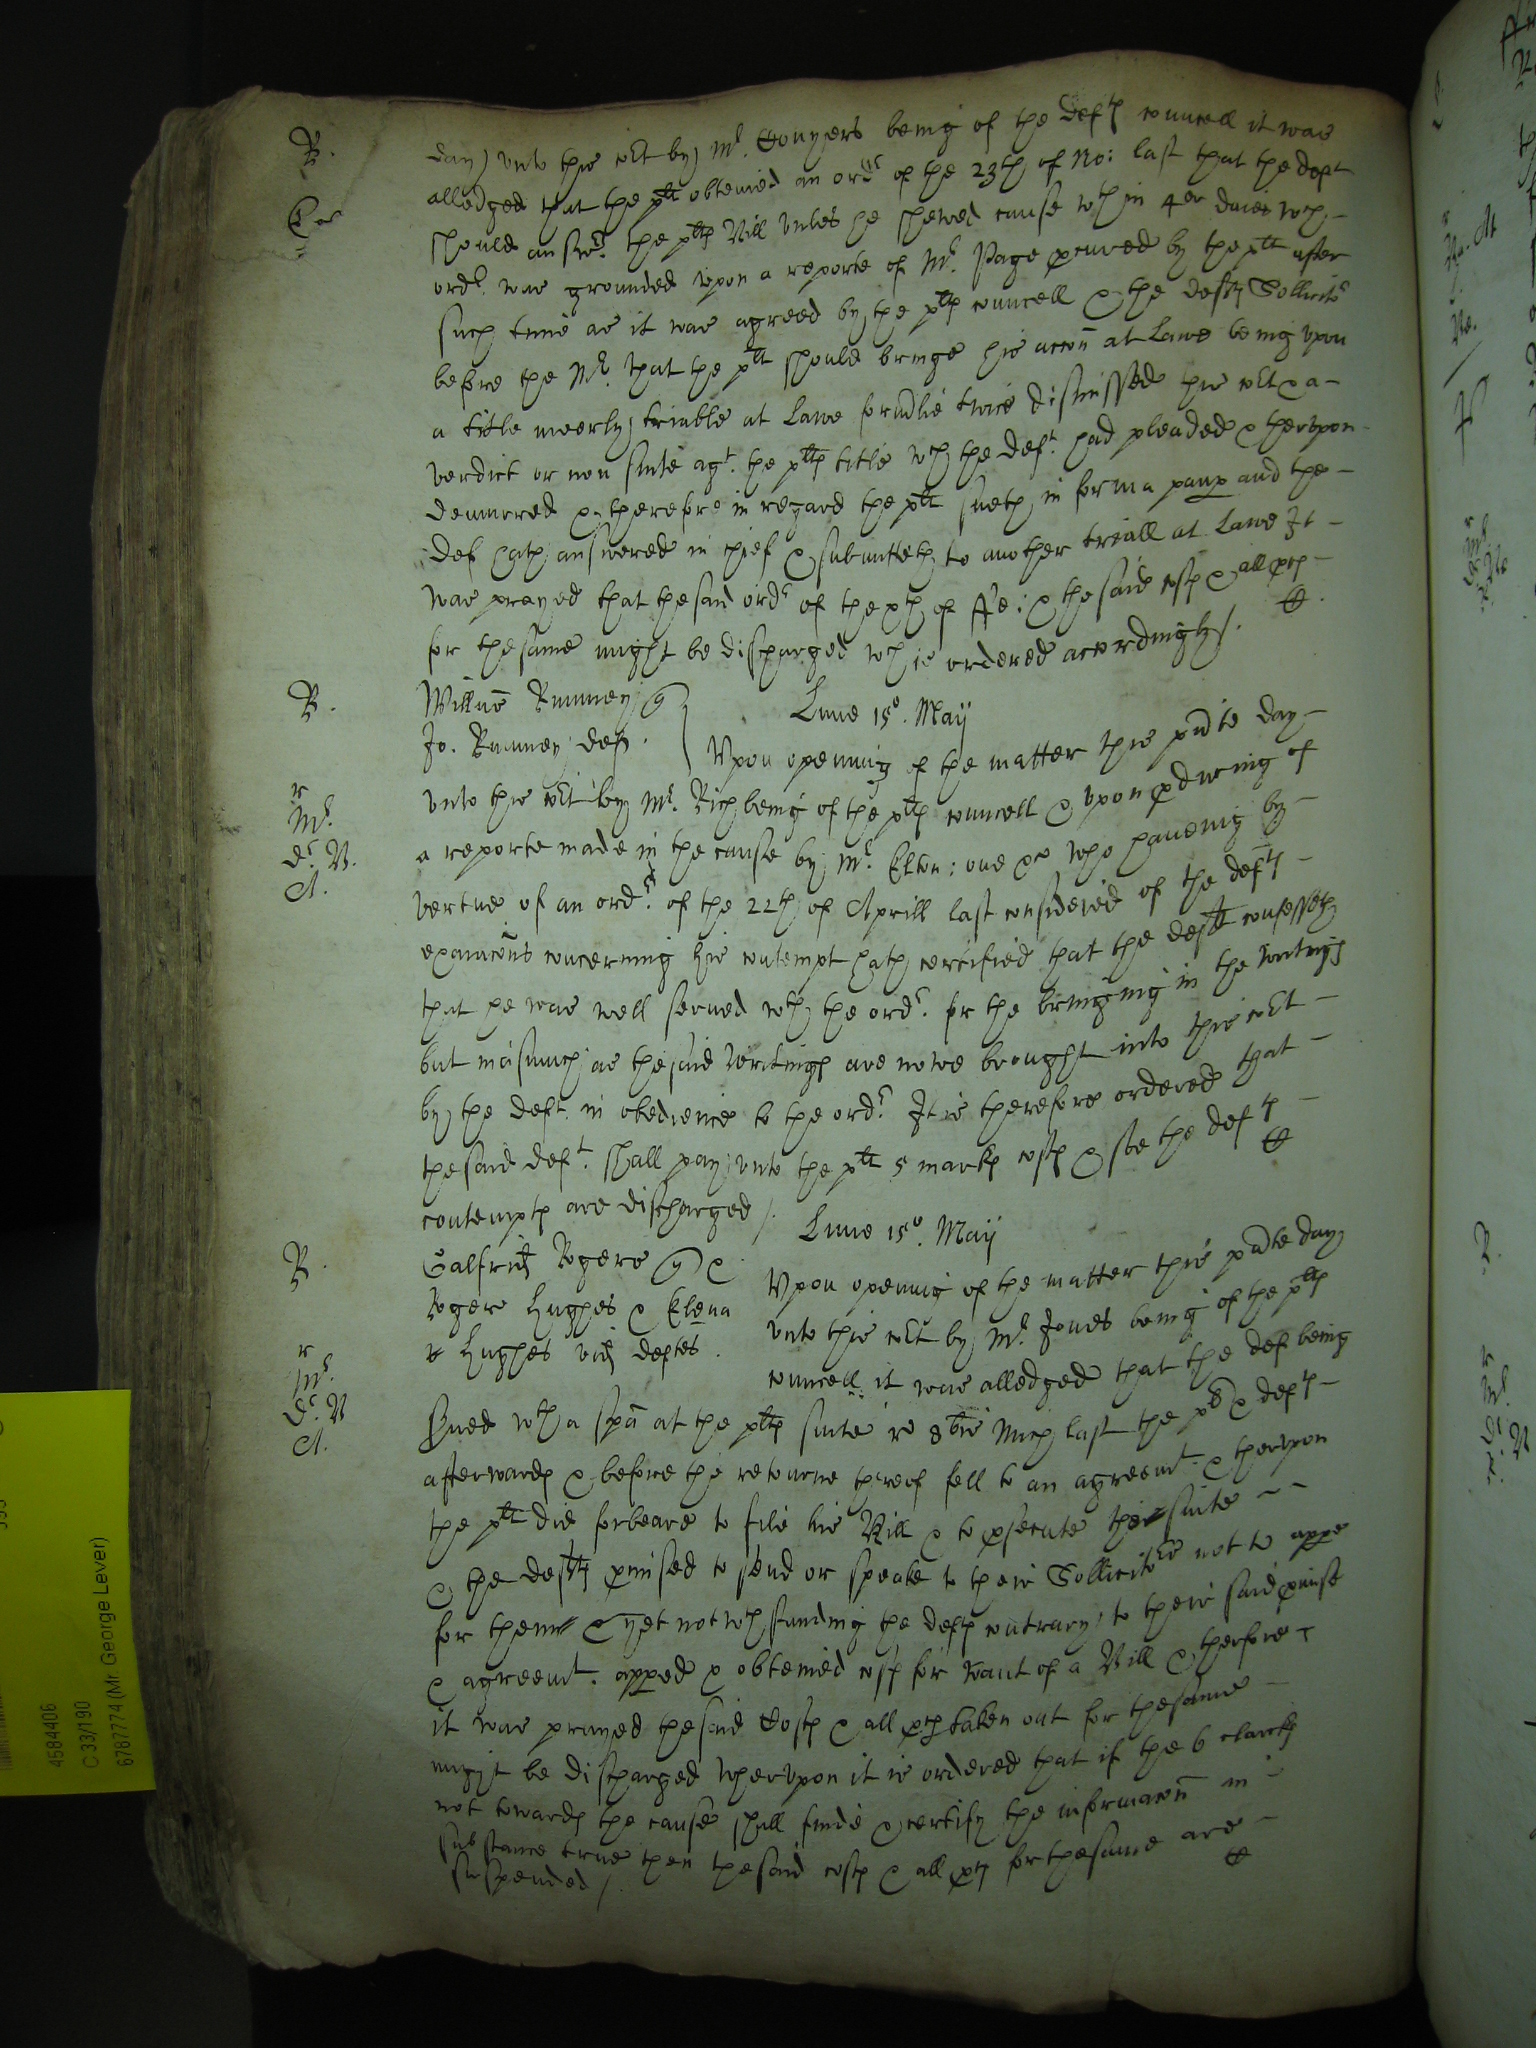 day unto this co:rt by M:r Conyers being of the def:ts councell it was
alledged that the p:lt obteined an ord:r of the 23th of No: last that the deft
should answ:r the p:lts Bill unles he shewed cause w:th in 4er daies w:ch
ord:r was grounded upon a reporte of M:r Page p:cured by the p:lt after
such time as it was agreed by the p:lts councell & the defts Sollicit:r
before the M:r that the p:lt should bringe his accon at Lawe being upon
a title meerly triable at Lawe formlie twice dismissed this co:rt & a
verdict or non suite ag:t the p:lts title w:ch the def:t had pleaded & therupon
demurred & therefore in regard the p:lt sueth in forma paup and the
Def hath answered in chief & submitteth to another triall at Lawe It
was prayed that the said ord:r of the xth of Fe: & the said costs & all p:cs
for the same might be discharged w:ch is ordered accordingly /.
R.
Willm̃e Rumney q
Jo. Rumney def.
Lune 15º. Maij
Upon opening of the matter this p:nte day
unto this co:rt by M:r Rich being of the p:lts councell & upon p:ducing of
a reporte made in the cause by M:r Elton: one &c who haveing by
vertue of an ord:r of the 22th of Aprill last considered of the defts
examinac̃ons concerning his contempt hath certified that the deft confesseth
that he was well served w:th the ord:r for the bringing in the writings
but inasmuch as the said writings are nowe brought into this co:rt
by the def:t in obedience to the ord:r It is therefore ordered that
the said def:t shall pay unto the p:lt 5 marks costs & soe the defts
contempts are discharged /.
R.
Galfrid Rogers q &
Roger Hughes & Elena
Hughes vid deftes.
Lune 15º. Maij
Upon opening of the matter this p:nte day
unto this co:rt by M:r Jones being of the p:lts
councell it was alledged that the def being
Sued w:th a spã at the p:lts suite re 8bris Mich last the p:lt & defts
afterwards & before the retourne thereof fell to an agreem:t & therupon
the p:lt did forbeare to file his Bill & to p:secute their suite
& the defts p:mised to send or speake to their Sollicit:rs not to appe
for them & yet notw:thstanding the defts contrary to their said p:mise
& agreem:t. apped & obteined costs for want of a Bill & therfore
it was prayed the said Costs & all p:cs taken out for the same
might be discharged wherupon it is ordered that if the 6 clarks
not towards the cause shall finde & certify the informac̃on in
substance true then the said costs & all p:cs for the same are
suspended /.
4584406
C 33/190
6787774 (Mr. George Lever)